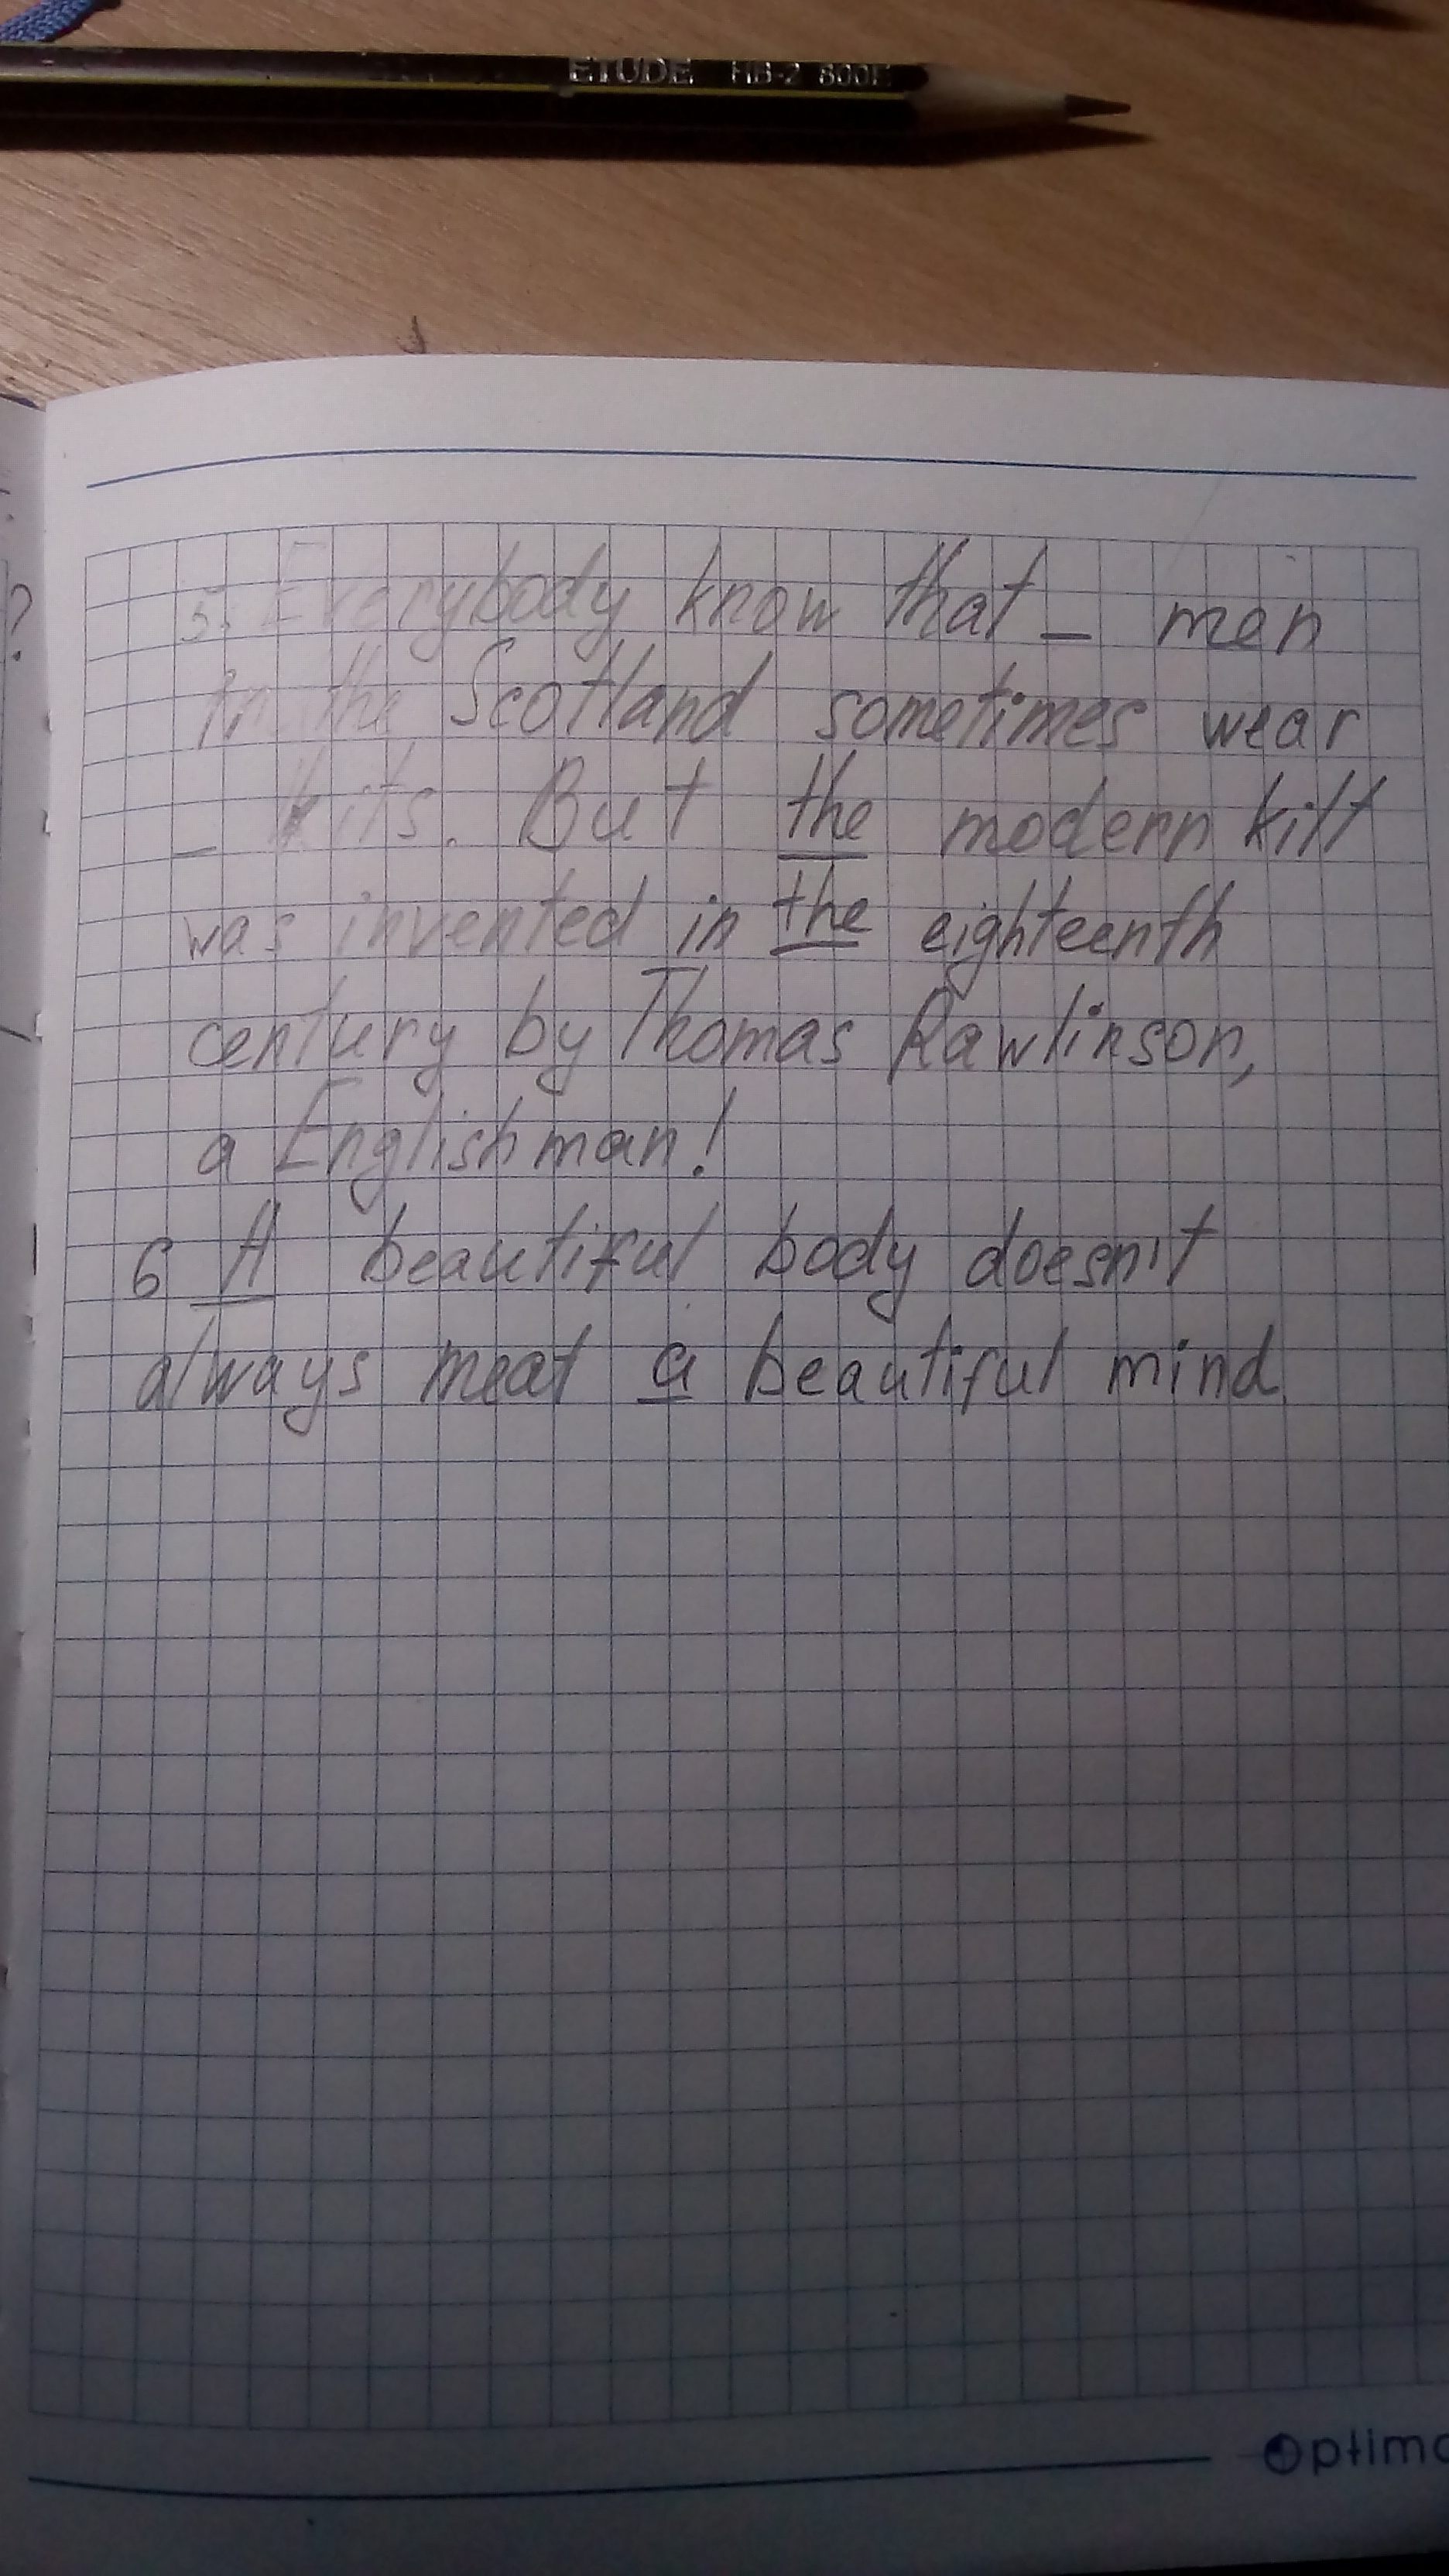 ETUDE HB-2 800E
?
5. Everybody know that _ men
in the Scotland sometimes wear
_ kits. But the modern kilt
was invented in the eighteenth
century by Thomas Rawlinson,
a Englishman!
6 A beautiful body doesn't
always meat a beautiful mind.
Optima